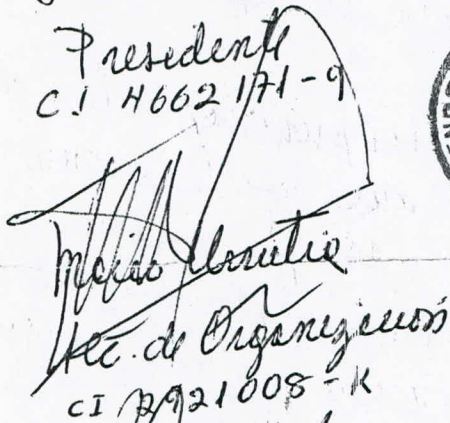 Presidente
C.I 4662171-9
Mario Urrutia
Sec. de Organización
CI 921008-K